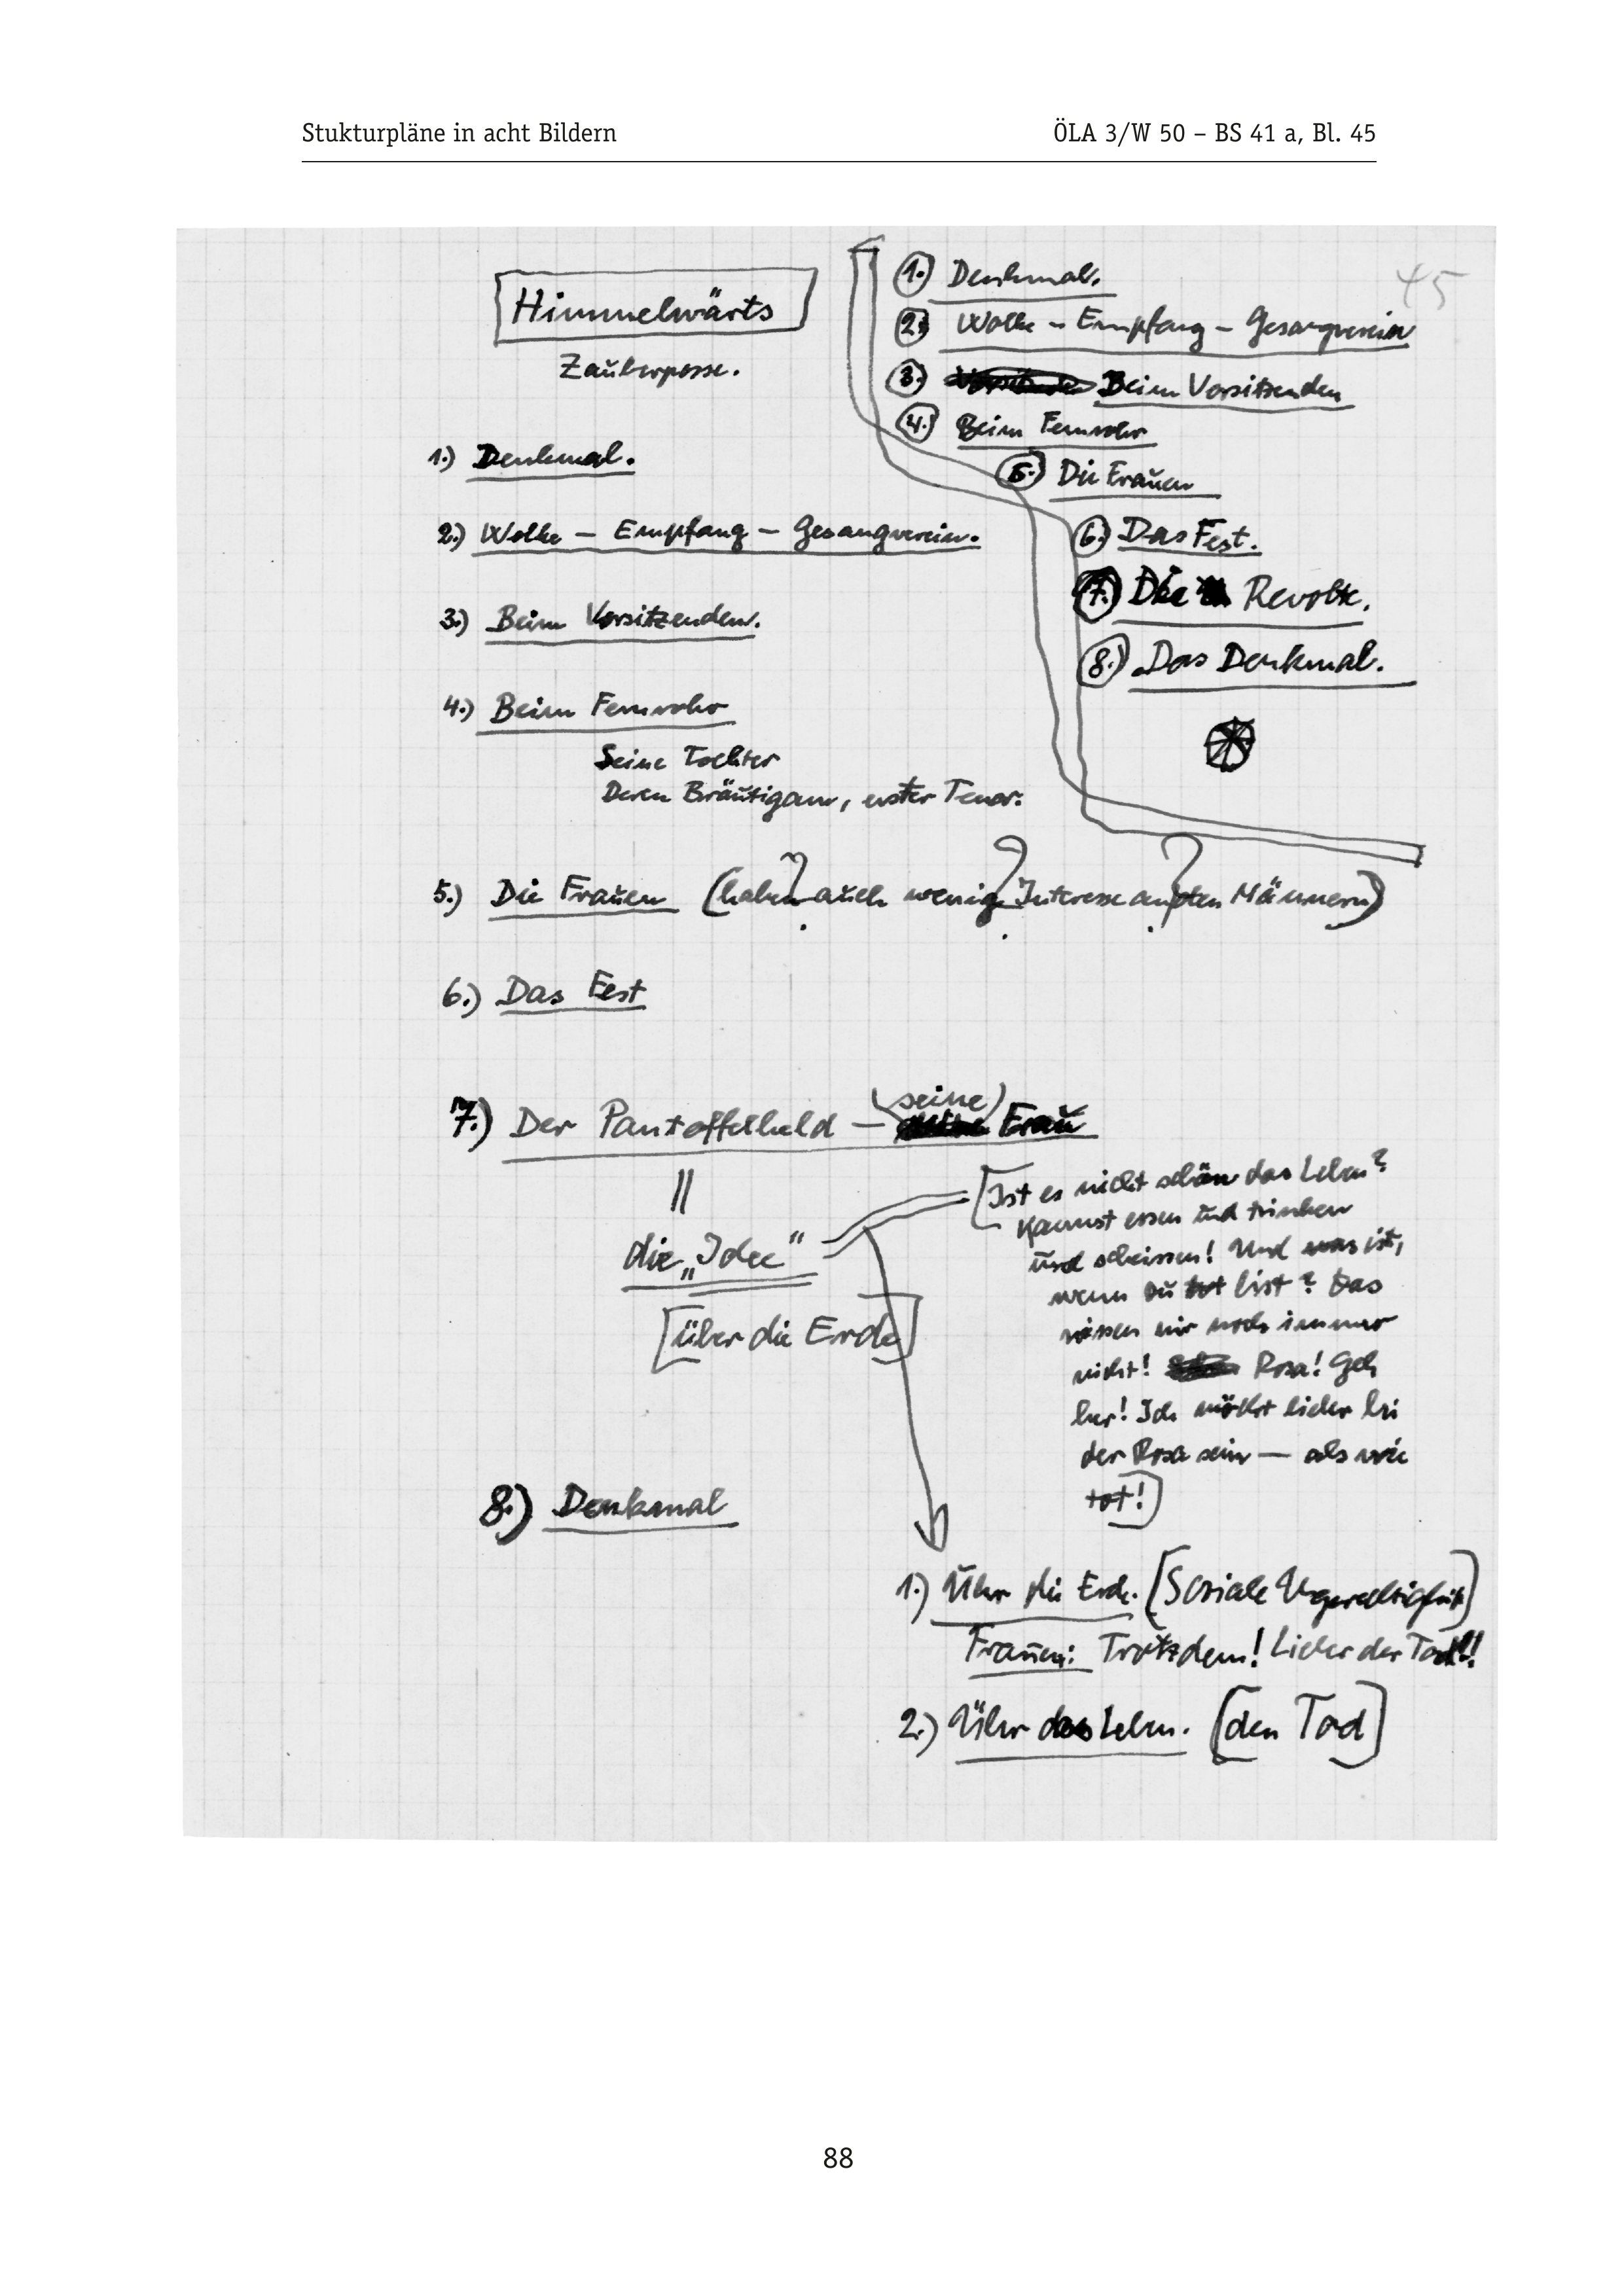 Stukturpläne in acht Bildern
ÖLA 3/W 50 – BS 41 a, Bl. 45
45
Himmelwärts
Zauberposse.
1.) Denkmal.
2.) Wolke – Empfang – Gesangverein.
3.) Beim Vorsitzenden.
4.) Beim Fernrohr
Seine Tochter
Deren Bräutigam, erster Tenor.
5.) Die Frauen (haben auch wenig Interesse an den Männern)
? ? ?
6.) Das Fest
7.) Der Pantoffelheld – seine Frau
||
die „Idee"
[über die Erde]
8.) Denkmal
1.) Denkmal.
2.) Wolke – Empfang – Gesangverein
3.) Beim Vorsitzenden
4.) Beim Fernrohr
5.) Die Frauen
6.) Das Fest.
7.) Die Revolte.
8.) Das Denkmal.
[Ist es nicht schön das Leben?
Kannst essen und trinken
und scheissen! Und was ist,
wenn Du tot bist? Das
wissen wir noch immer
nicht! Rosa! Geh
her! Ich möcht lieber bei
der Rosa sein — als wie
tot!]
1.) Über die Erde. [Soziale Ungerechtigkeit]
Frauen: Trotzdem! Lieber der Tod!!
2.) Über das Leben. [den Tod]
88